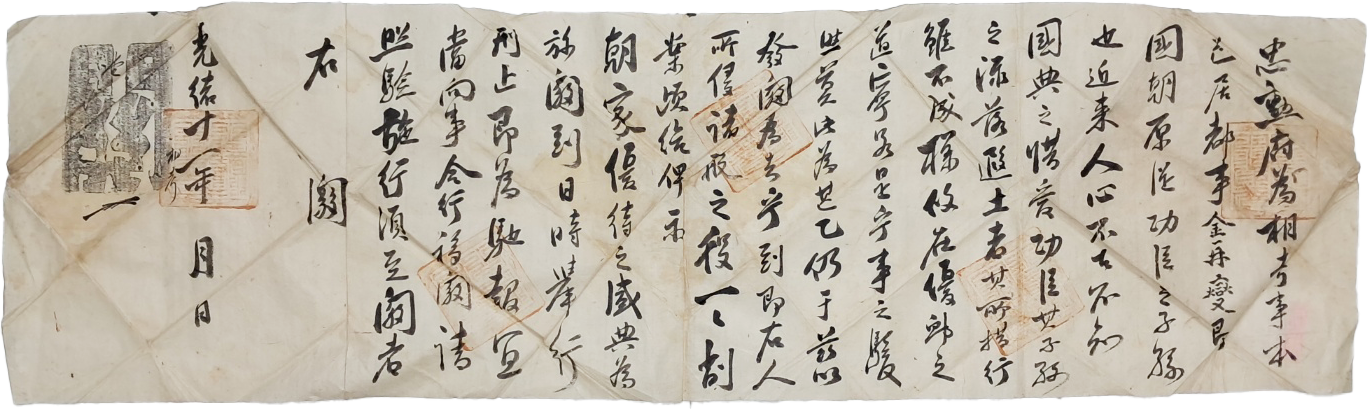 忠勳府爲相考事本
邑居都事金再燮是
國朝原從功臣之子孫
也近來人心不古不知
國典之惜愛功臣其子孫
之流落遐土者其所横行
雖不成樣攸在優卹之
道寧容是乎事之駭
然莫此爲甚乙仍于玆以
發關爲去乎到卽右人
所侵諸般之役一一割
案頉給俾示
朝家優待之盛典爲
旀關到日時擧行
形止卽爲馳報宜
當向事合行移關請
照驗施行須至關者
右關
光緒十一年 月 日